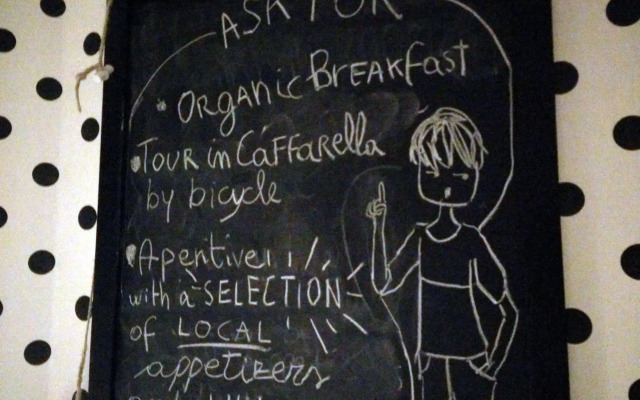 ASK FOR
• ORGANIC BREAKFAST
• TOUR in Caffarella
by bicycle
• Aperitive!!!
with a SELECTION
of LOCAL
appetizers